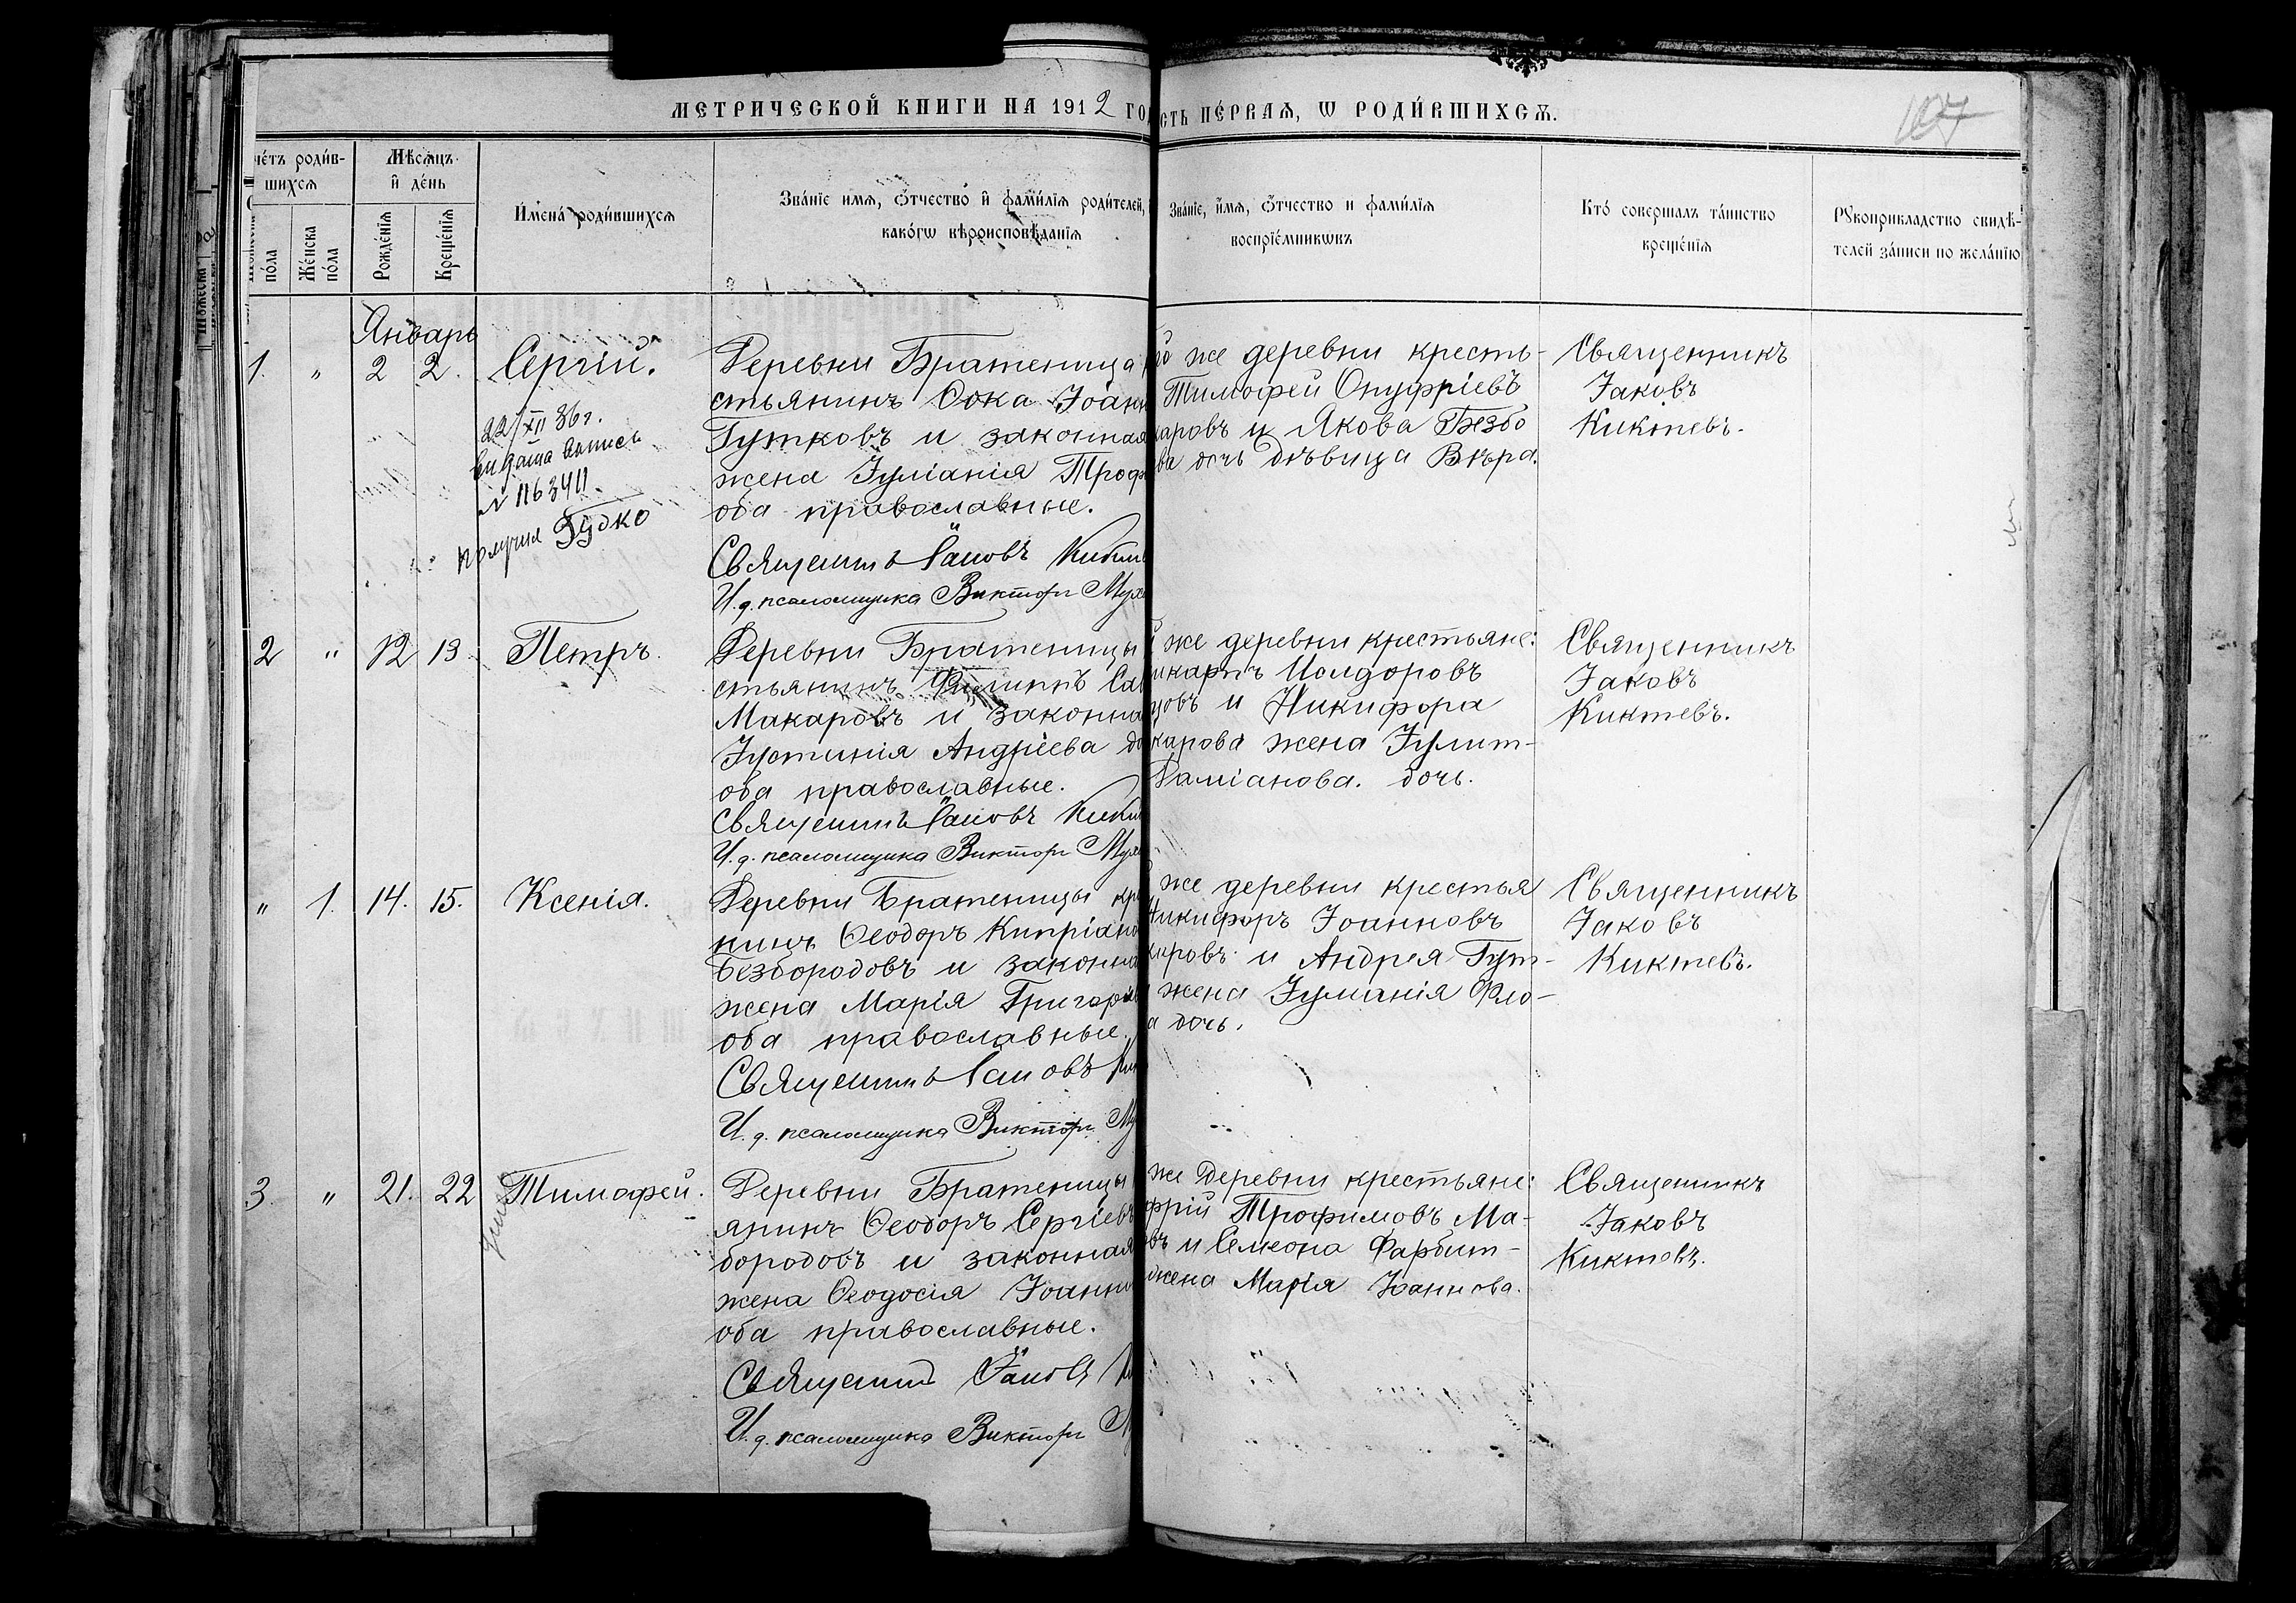 МЕТРИЧЕСКОЙ КНИГИ НА 1912 ГО
СТЬ ПЕ́РВАѦ, Ѡ РОДИ́ВШИХСѦ.
107
че́тъ роди́в-
шихсѧ
Мѣ́сѧцъ
и҆ де́нь
по́ла
Же́нска
по́ла
Рожде́нїѧ
Креще́нїѧ
И҆мена̀ роди́вшихсѧ
Зва́нїе имѧ, ѻ҆́тчество и҆ фами́лїѧ роди́телей,
како́гѡ вѣроисповѣ́данїѧ
Зва́нїе, и҆́мѧ, ѻ҆́тчество и фами́лїѧ
воспрїе́мникѡвъ
Кто̀ соверша́лъ та́инство
креще́нїѧ
Рꙋкоприкладство свидѣ́-
телей за́писи по жела́нїю
Январь
1. " 2 2. Сергій.
22/XII 36 г.
выдана выпись
№ 1163411.
получил Гудко
Деревни Братеница
стьянинъ Ѳока Іоанн
Гутковъ и законная
жена Іуліанія Троф
оба православные.
Священникъ Іаковъ
И. д. псаломщика Викторъ
же деревни кресть-
Тимофей Онуфріевъ
каровъ и Якова Безбо
ва дочь дѣвица Вѣра.
Священникъ
Іаковъ
Киктевъ.
2 " 12 13 Петръ.
Деревни Братеницы
стьянинъ Филиппъ Сав
Макаровъ и законна
Іустинія Андріева до
оба православные.
Священникъ Іаковъ
И. д. псаломщика Викторъ
же деревни крестьяне:
икарпъ Исидоровъ
цовъ и Никифора
карова жена Іулит-
Даміанова. дочь.
Священникъ
Іаковъ
Киктевъ.
" 1. 14. 15. Ксенія.
Деревни Братеницы кре
нинъ Ѳеодоръ Кипріано
Безбородовъ и законна
жена Марія Григорiев
оба православные.
Священникъ Іаковъ
И. д. псаломщика Викторъ
же деревни крестья
Никифоръ Іоанновъ
каровъ и Андрея Гут-
жена Іуліанія Фло-
а дочь.
Священникъ
Іаковъ
Киктевъ.
3. " 21. 22 Тимофей.
Деревни Братеницы
янинъ Ѳеодоръ Сергіевъ
бородовъ и законная
жена Ѳеодосія Іоанно
оба православные.
Священникъ Іаковъ
И. д. псаломщика Викторъ
же деревни крестьяне:
фрій Трофимовъ Ма-
овъ и Семеона Фарбит-
жена Марія Іоаннова.
Священникъ
Іаковъ
Киктевъ.